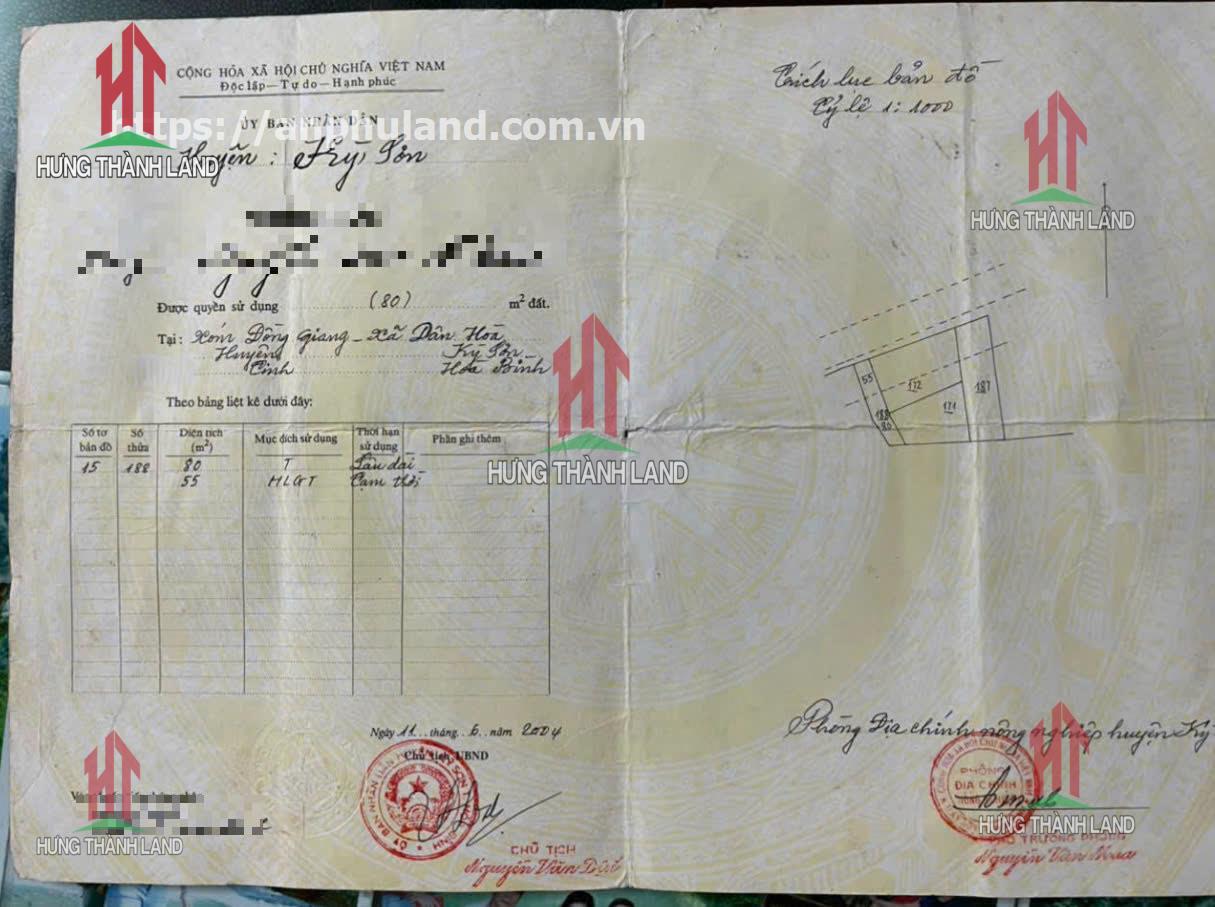 CỘNG HÒA XÃ HỘI CHỦ NGHĨA VIỆT NAM
Độc lập — Tự do — Hạnh phúc
https://anphuland.com.vn
ỦY BAN NHÂN DÂN
Huyện: Kỳ Sơn
HƯNG THÀNH LAND
Được quyền sử dụng (80) m² đất.
Tại: Xóm Đồng Giang - Xã Dân Hoà
Huyện Kỳ Sơn
Tỉnh Hoà Bình
Theo bảng liệt kê dưới đây:
Số tờ bản đồ Số thửa Diện tích (m²) Mục đích sử dụng Thời hạn sử dụng Phần ghi thêm
15 188 80 T Lâu dài
55 HLGT Tạm thời
Ngày 11 tháng 6 năm 2004
Chủ tịch UBND
CHỦ TỊCH
Nguyễn Văn
HƯNG THÀNH LAND
HƯNG THÀNH LAND
Trích lục bản đồ
Tỷ lệ 1:1000
HƯNG THÀNH LAND
55
172
187
171
188
80
Phòng Địa chính nông nghiệp huyện Kỳ
PHÒNG
ĐỊA CHÍNH
HƯNG THÀNH LAND
PHÓ TRƯỞNG PHÒNG
Nguyễn Văn